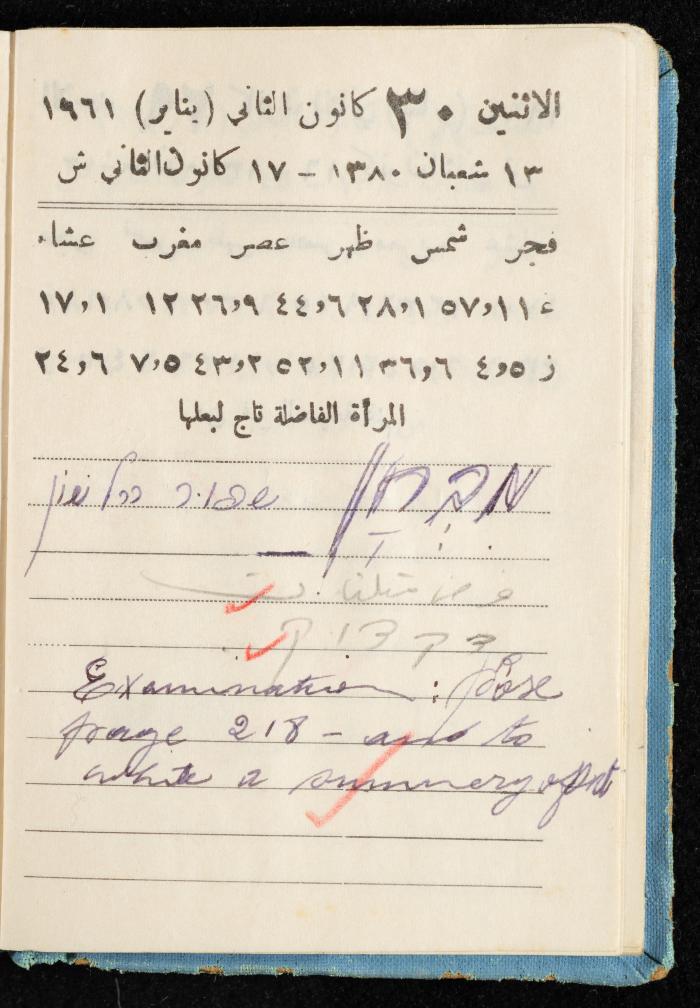 الاثنين ٣٠ كانون الثاني (يناير) ١٩٦١
١٣ شعبان ١٣٨٠ – ١٧ كانون الثاني ش
فجر شمس ظهر عصر مغرب عشاء
ع ١١,٥٧ ١,٢٨ ٦,٤٤ ٩,٢٦ ١٢ ١,١٧
ز ٥,٤ ٦,٣٦ ١١,٥٢ ٢,٤٣ ٥,٧ ٦,٢٤
المرأة الفاضلة تاج لبعلها
מִבְחָן
דקדוק
Examination : Prose
page 218 – and to
write a summery of